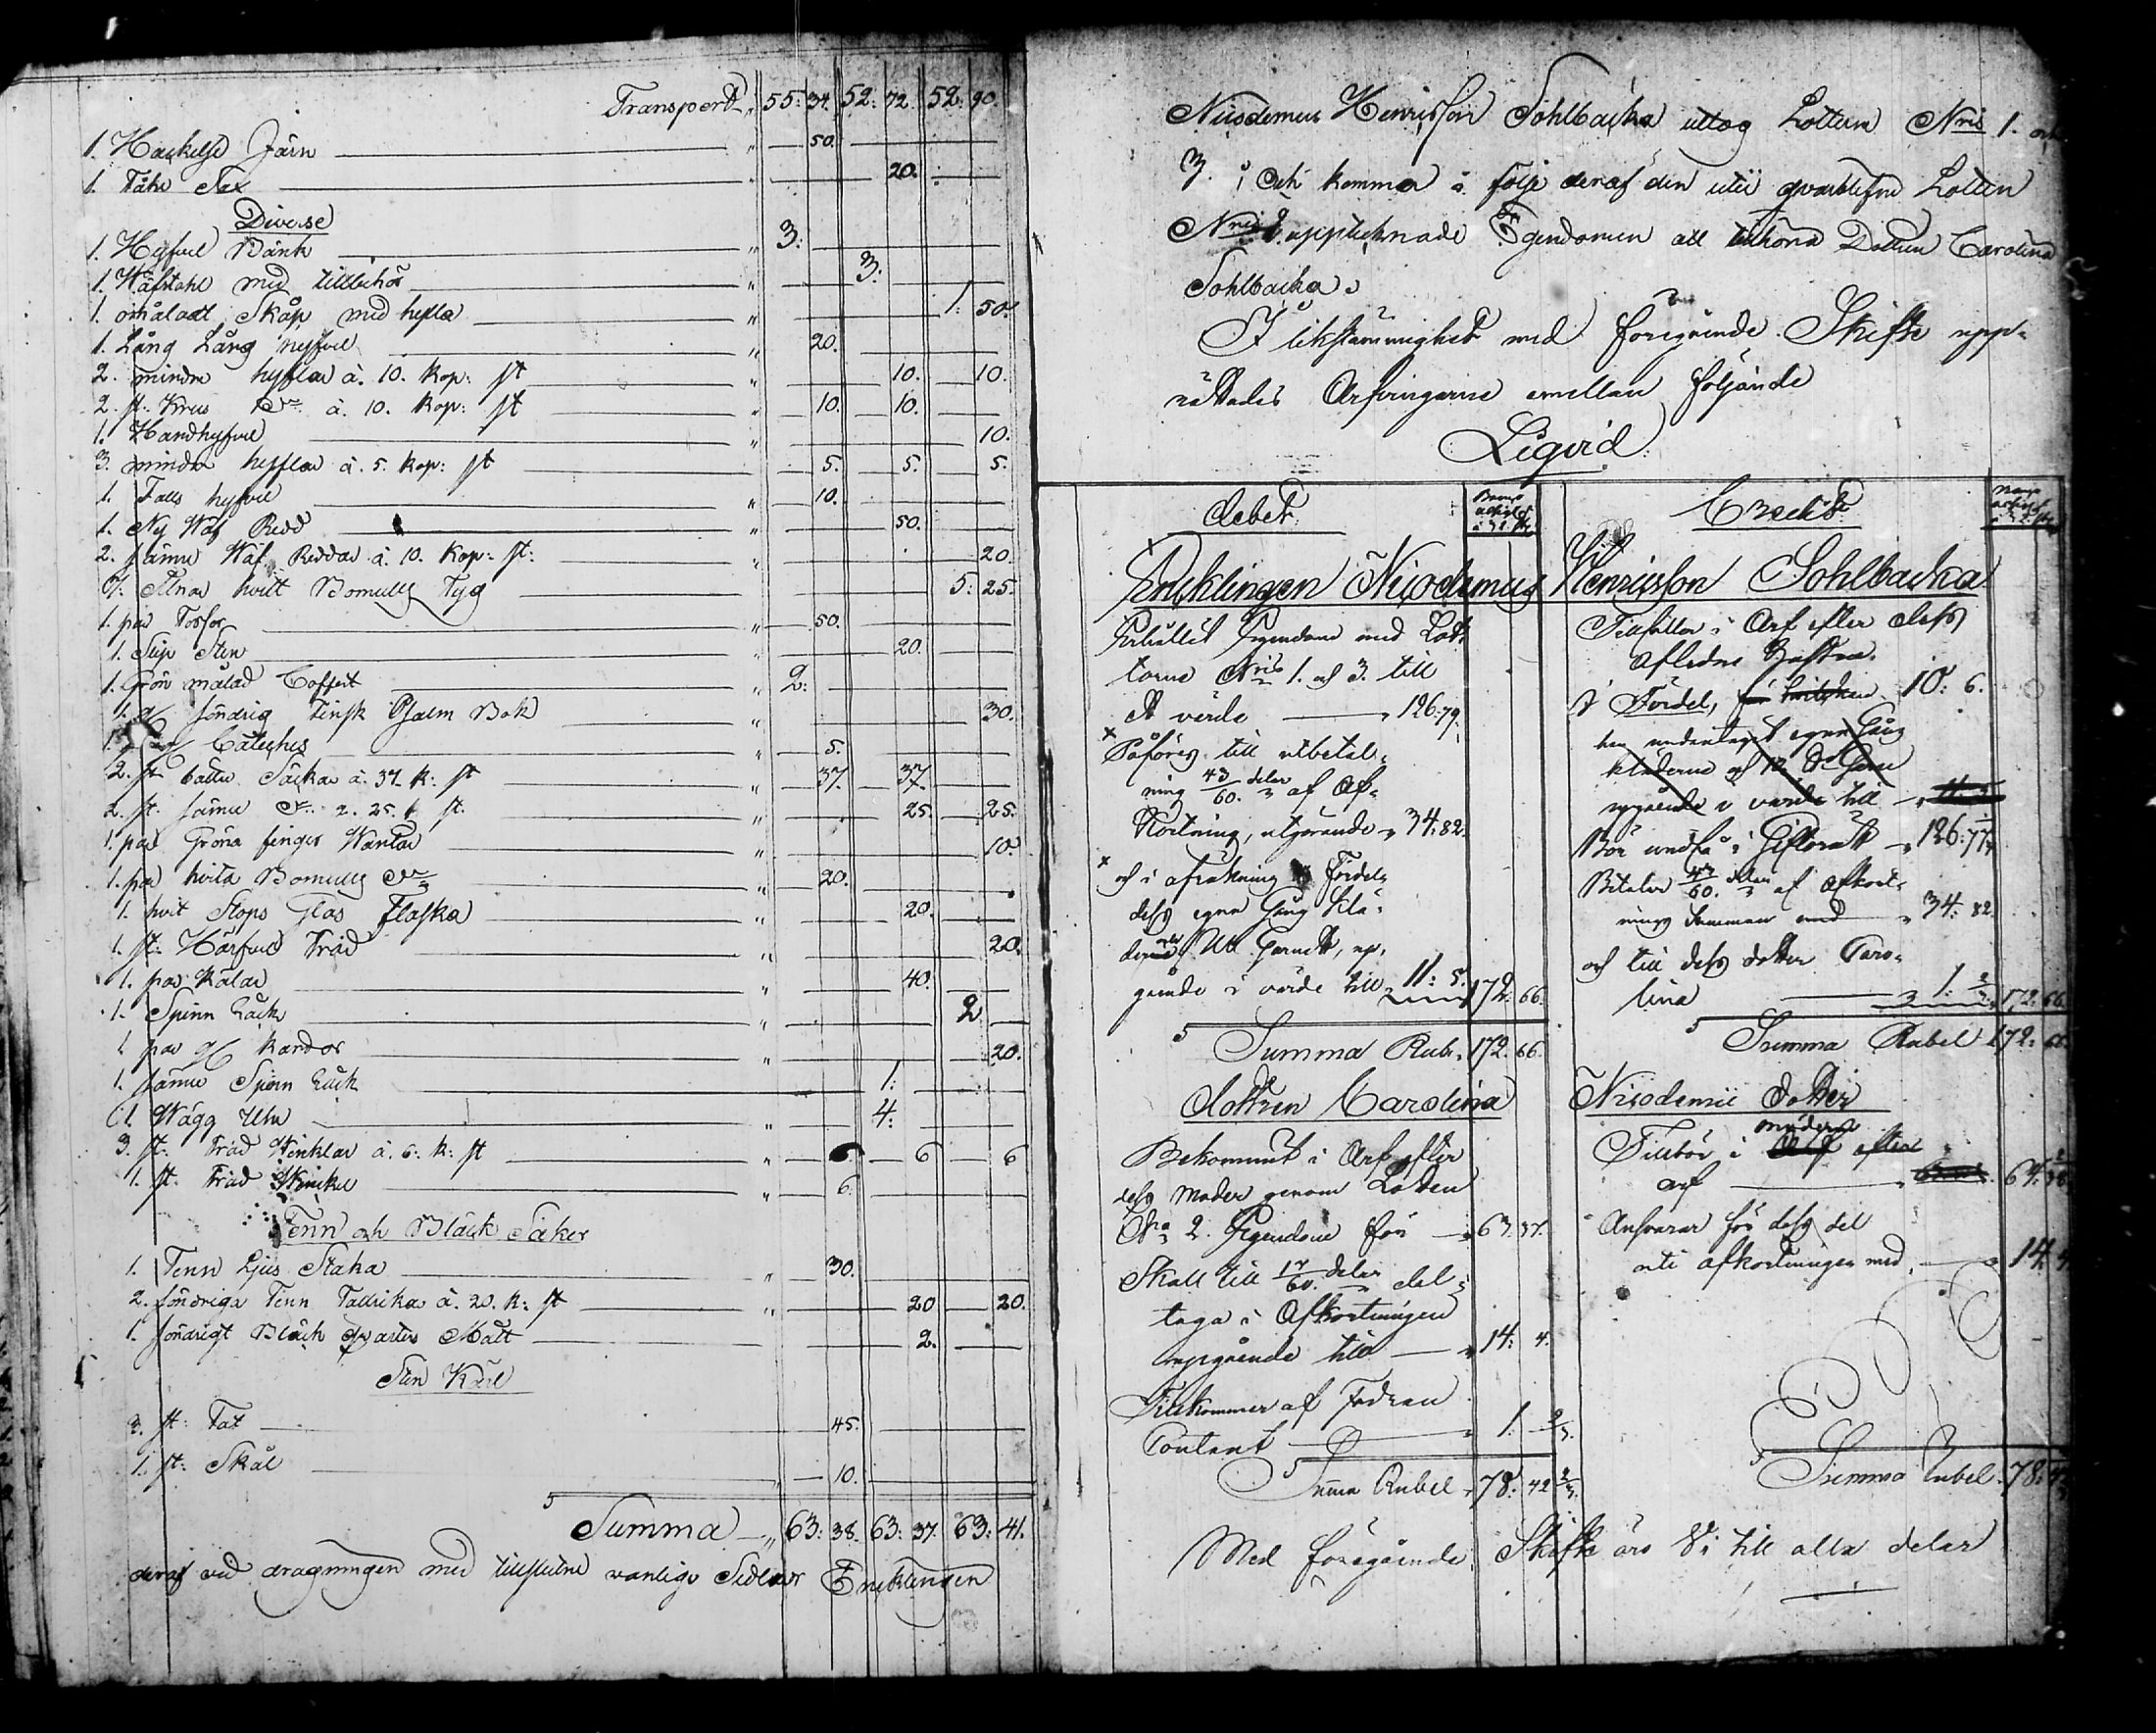 Transport " 55: 34. 52: 72. 52: 90.
1. Hackelse Järn " 50.
1. Fåhr Sax " 20.
Diverse
1. Hyfvel Bänk " 3:
1. Wäfstohl med tillbehör " 3:
1. omåladt Skåp med hylla " 1: 50.
1. Lång hyfvel " 20.
2. mindre hyflar à. 10. Kop: st " 10. 10.
2. st. Kreus à. 10. Kop: st " 10. 10.
1. Handhyfvel " 10.
3. mindre hyflar à. 5. Kop: st 5. 5. 5.
1. Falls hyfvel " 10.
1. Ny Wäf Redd " 50.
2. sämre Wäf Reddar à. 10. Kop: st: " 20.
Alnar hvitt Bomulls Tyg 5: 25.
1. par " 50.
1. Slip Sten " 20.
1. Grön målad Coffert " 2:
1. söndrig finsk Psalm Bok " 30.
Cateches " 5.
2. st. bättre Säckar à. 37. k: st " 37. 37.
2. st. sämre à. 25. k st. " 25. 25.
1. par Gröna finger Wantar " 10.
1. par hvita Bomulls " 20.
1. hvit Stops Glas Flaska " 20.
1. st: Tråd " 20.
1. par Kardar " 40.
1. Spinn Råck " 2
1 par kardor " 20.
1. sämre Spinn Råck 1:
1. Wägg Uhr " 4:
3. st. Träd Winklar à. 6. k: st " 6. 6 6
1. st. Träd Winkel " 6.
Tenn och Bläck Saker
1. Tenn Ljus Staka " 30.
2. söndriga Tenn Tallrikar à. 20. k: st " 20 20.
1. söndrigt Bläck qvarters Mått 2.
Sten Kärl
3. st: Fat 45.
1. st: Skål 10.
Summa " 63: 38. 63: 37. 63: 41.
deraf vid dragningen med tillslutne vanlige Sedlar Encklingen
Nicodemus Henricsson Sohlbacka uttog Lotterne Nris 1. och
3. och kommer i följe deraf den uti qvarblefne Lotten
upptecknade Egendomen att tillhöra Dottren Carolina
Sohlbacka.
I likstämmighet med föregående Skifte upp-
rättades Arfvingarne emellan följande
Liqvid.
Debet
Credit
Encklingen Nicodemus Henricsson Sohlbacka
Erhållit Egendom med Lot-
terne Nris 1. och 3. till
ett värde " 126: 79.
Påföres till utbetal-
ning 43/60. delar af Af-
kortning, utgörande " 34: 82.
och i afräkning Fördel,
dess egna Gång Klä-
derne Ull Garnett, up-
gående i värde till 11: 5. 172: 66.
Summa Rub. 172: 66.
Tillfaller i Arf efter dess
aflidne Hustru.
I Fördel, 10: 6.
han undantaget egna Gång
kläderne
uppgående i värde till
Bör undfå i Giftorätt " 126: 77
Betalar 43/60. delar af Afkort-
nings Summan med " 34: 82.
och till dess dotter Caro-
lina 1: 2/3 172: 66
Summa Rubel 172: 66.
dottren Carolina
Bekommit i Arf efter
dess Moder genom Lotten
No 2. Egendom för " 63: 37.
Skall till 17/60. delar del-
taga i Afkortningen
uppgående till " 14: 4.
Tillkommer af Fadren
Contant " 1: 2/3.
Summa Rubel " 78: 42 2/3.
Nicodemii dotter
Tillhör i möderne
arf 64:
Ansvarar för dess del
uti afkortningen med " 14:
Summa Rubel 78:
Med föregående Skifte äro Vi till alla delar